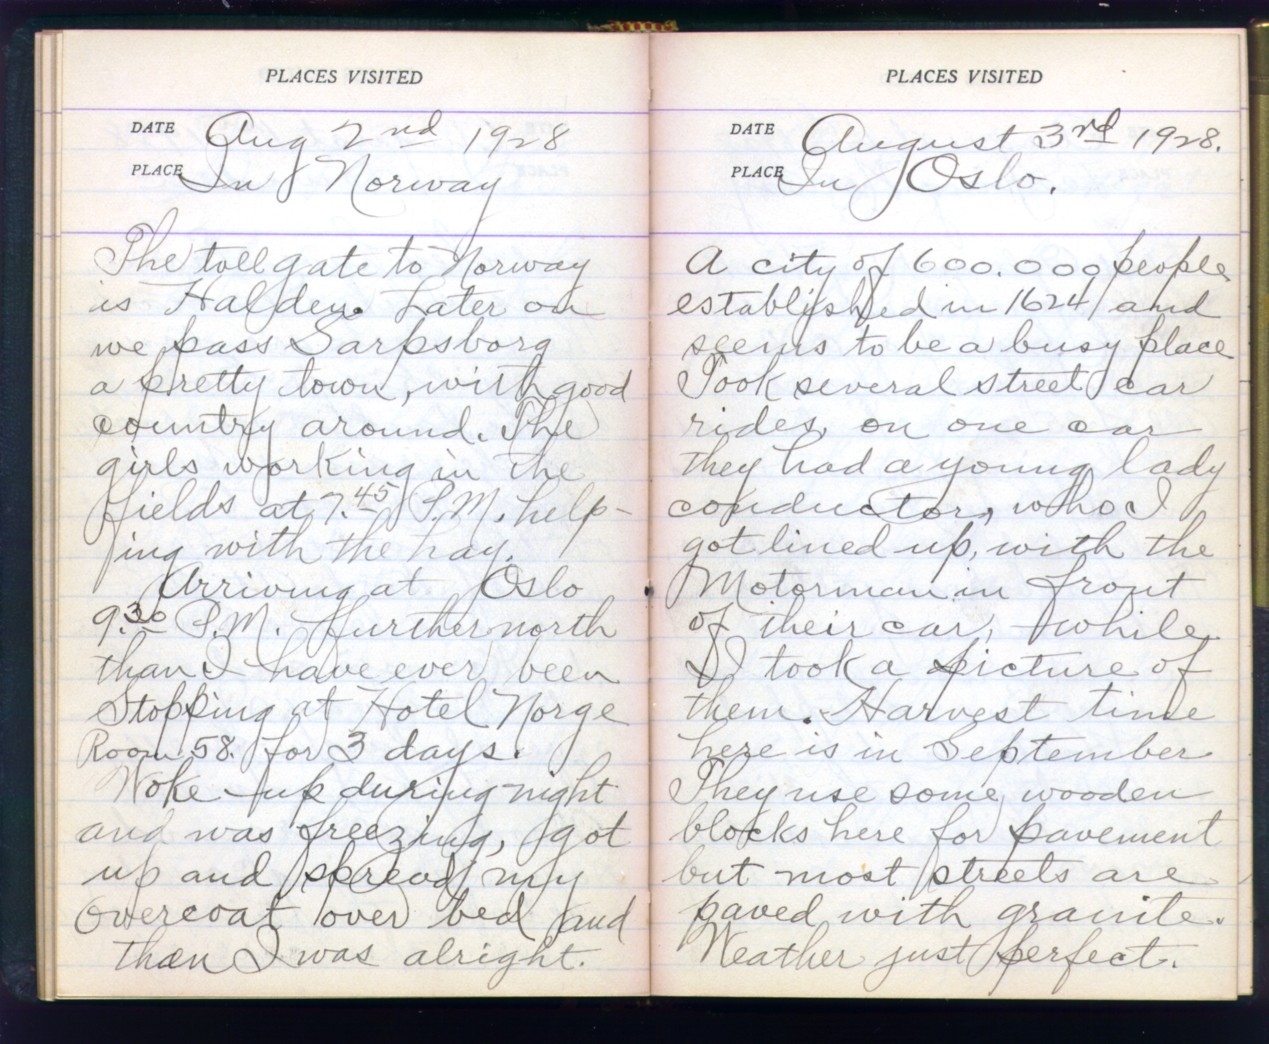 PLACES VISITED
DATE Aug 2nd 1928
PLACE In Norway
The tollgate to Norway
is Halden. Later on
we pass Sarpsborg
a pretty town, with good
country around. The
girls working in the
fields at 7.45 P.M. help-
ing with the hay.
Arriving at Oslo
9.30 P.M. further north
than I have ever been
Stopping at Hotel Norge
Room 58. for 3 days.
Woke up during night
and was freezing, got
up and spread my
overcoat over bed and
then I was alright.
PLACES VISITED
DATE August 3rd 1928.
PLACE In Oslo.
A city of 600.000 people
established in 1624 and
seems to be a busy place
Took several street car
rides, on one car
they had a young lady
conductor, who I
got lined up, with the
Motorman in front
of their car, while
I took a picture of
them. Harvest time
here is in September
They use some wooden
blocks here for pavement
but most streets are
paved with granite.
Weather just perfect.